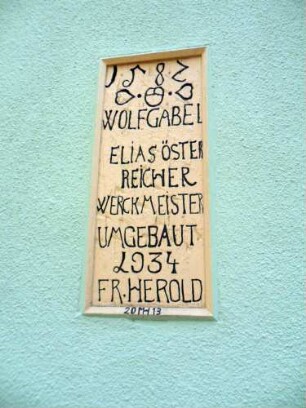 1582
WOLFGABEL
ELIAS ÖSTER
REICHER
WERCKMEISTER
UMGEBAUT
1934
FR. HEROLD
20 MH 13